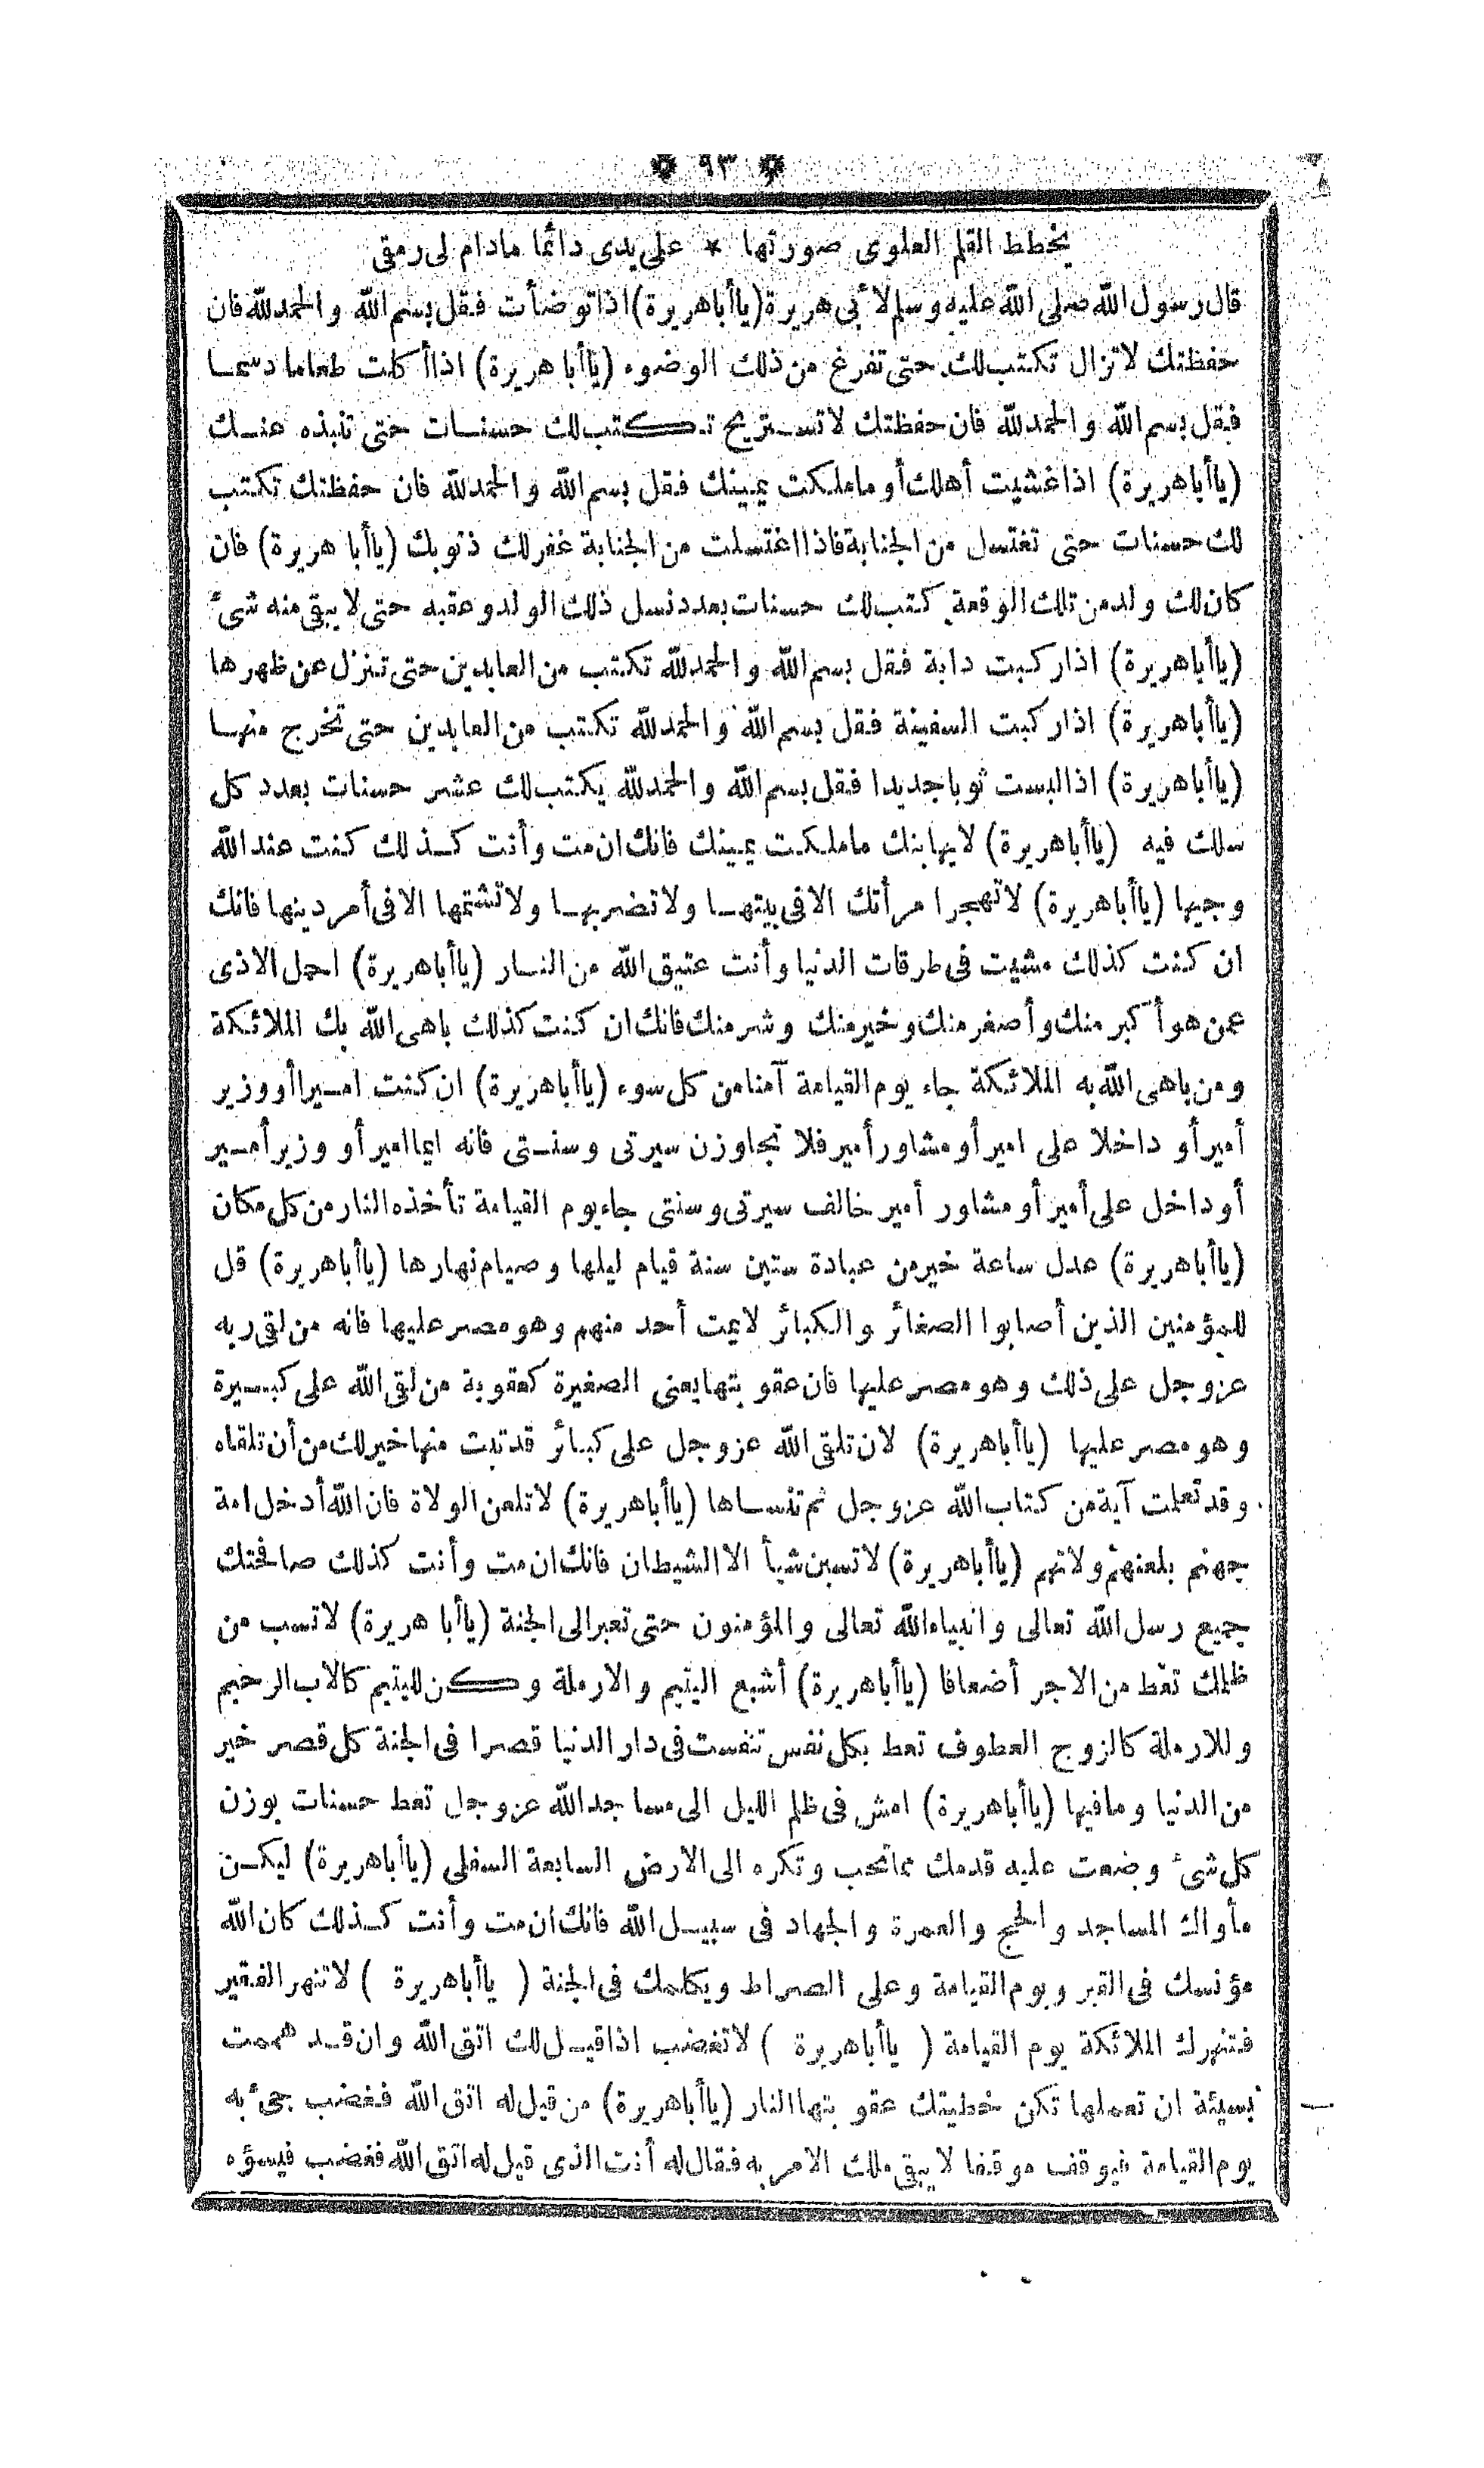 * ٩٣ *
يخطط القلم العلوى صورتها * على يدى دائما مادام لى رمقى
قال رسول الله صلى الله عليه وسلم لأبى هريرة (ياأباهريرة) اذا توضأت فقل بسم الله والحمد لله فان
حفظتك لا تزال تكتب لك حتى تفرغ من ذلك الوضوء (ياأباهريرة) اذا أكلت طعاما دسما
فقل بسم الله والحمد لله فان حفظتك لا تستريح تكتب لك حسنات حتى تنبذه عنك
(ياأباهريرة) اذا غشيت أهلك أو ما ملكت يمينك فقل بسم الله والحمد لله فان حفظتك تكتب
لك حسنات حتى تغتسل من الجنابة فاذا اغتسلت من الجنابة غفر لك ذنوبك (ياأبا هريرة) فان
كان لك ولد من تلك الوقعة كتب لك حسنات بعدد نسل ذلك الولد وعقبه حتى لا يبقى منه شئ
(ياأباهريرة) اذا ركبت دابة فقل بسم الله والحمد لله تكتب من العابدين حتى تنزل عن ظهرها
(ياأباهريرة) اذا ركبت السفينة فقل بسم الله والحمد لله تكتب من العابدين حتى تخرج منها
(ياأباهريرة) اذا لبست ثوبا جديدا فقل بسم الله والحمد لله يكتب لك عشر حسنات بعدد كل
سلك فيه (ياأباهريرة) لا يهابنك ما ملكت يمينك فانك ان مت وأنت كذلك كنت عند الله
وجيها (ياأباهريرة) لا تهجر امرأتك الا فى بيتها ولا تضربها ولا تشتمها الا فى أمر دينها فانك
ان كنت كذلك مشيت فى طرقات الدنيا وأنت عتيق الله من النار (ياأباهريرة) احمل الاذى
عمن هو أكبر منك وأصغر منك وخير منك وشر منك فانك ان كنت كذلك باهى الله بك الملائكة
ومن باهى الله به الملائكة جاء يوم القيامة آمنا من كل سوء (ياأباهريرة) ان كنت اميرا أو وزير
أمير أو داخلا على امير أو مشاور أمير فلا تجاوزن سيرتى وسنتى فانه ايما امير أو وزير أمير
أو داخل على أمير أو مشاور أمير خالف سيرتى وسنتى جاء يوم القيامة تأخذه النار من كل مكان
(ياأباهريرة) عدل ساعة خير من عبادة ستين سنة قيام ليلها وصيام نهارها (ياأباهريرة) قل
للمؤمنين الذين أصابوا الصغائر والكبائر لا يمت أحد منهم وهو مصر عليها فانه من لقى ربه
عز وجل على ذلك وهو مصر عليها فان عقوبتها يعنى الصغيرة كعقوبة من لقى الله على كبيرة
وهو مصر عليها (ياأباهريرة) لان تلقى الله عز وجل على كبائر قد تبت منها خير لك من أن تلقاه
وقد تعلمت آية من كتاب الله عز وجل ثم تنساها (ياأباهريرة) لا تلعن الولاة فان الله أدخل امة
جهنم بلعنهم ولاتهم (ياأباهريرة) لا تسبن شيأ الا الشيطان فانك ان مت وأنت كذلك صافحتك
جميع رسل الله تعالى وانبياء الله تعالى والمؤمنون حتى تعبر الى الجنة (ياأبا هريرة) لا تسب من
ظلمك تعط من الاجر أضعافا (ياأباهريرة) أشبع اليتيم والارملة وكن لليتيم كالاب الرحيم
وللارملة كالزوج العطوف تعط بكل نفس تنفست فى دار الدنيا قصرا فى الجنة كل قصر خير
من الدنيا وما فيها (ياأباهريرة) امش فى ظلم الليل الى مساجد الله عز وجل تعط حسنات بوزن
كل شئ وضعت عليه قدمك مما تحب وتكره الى الارض السابعة السفلى (ياأباهريرة) ليكن
مأواك المساجد والحج والعمرة والجهاد فى سبيل الله فانك ان مت وأنت كذلك كان الله
مؤنسك فى القبر ويوم القيامة وعلى الصراط ويكلمك فى الجنة ( ياأباهريرة ) لا تنهر الفقير
فتنهرك الملائكة يوم القيامة ( ياأباهريرة ) لا تغضب اذا قيل لك اتق الله وان قد هممت
بسيئة ان تعملها تكن خطيئتك عقوبتها النار (ياأباهريرة) من قيل له اتق الله فغضب جئ به
يوم القيامة فيوقف موقفا لا يبقى ملك الا مر به فقال له أنت الذى قيل له اتق الله فغضب فيسؤه